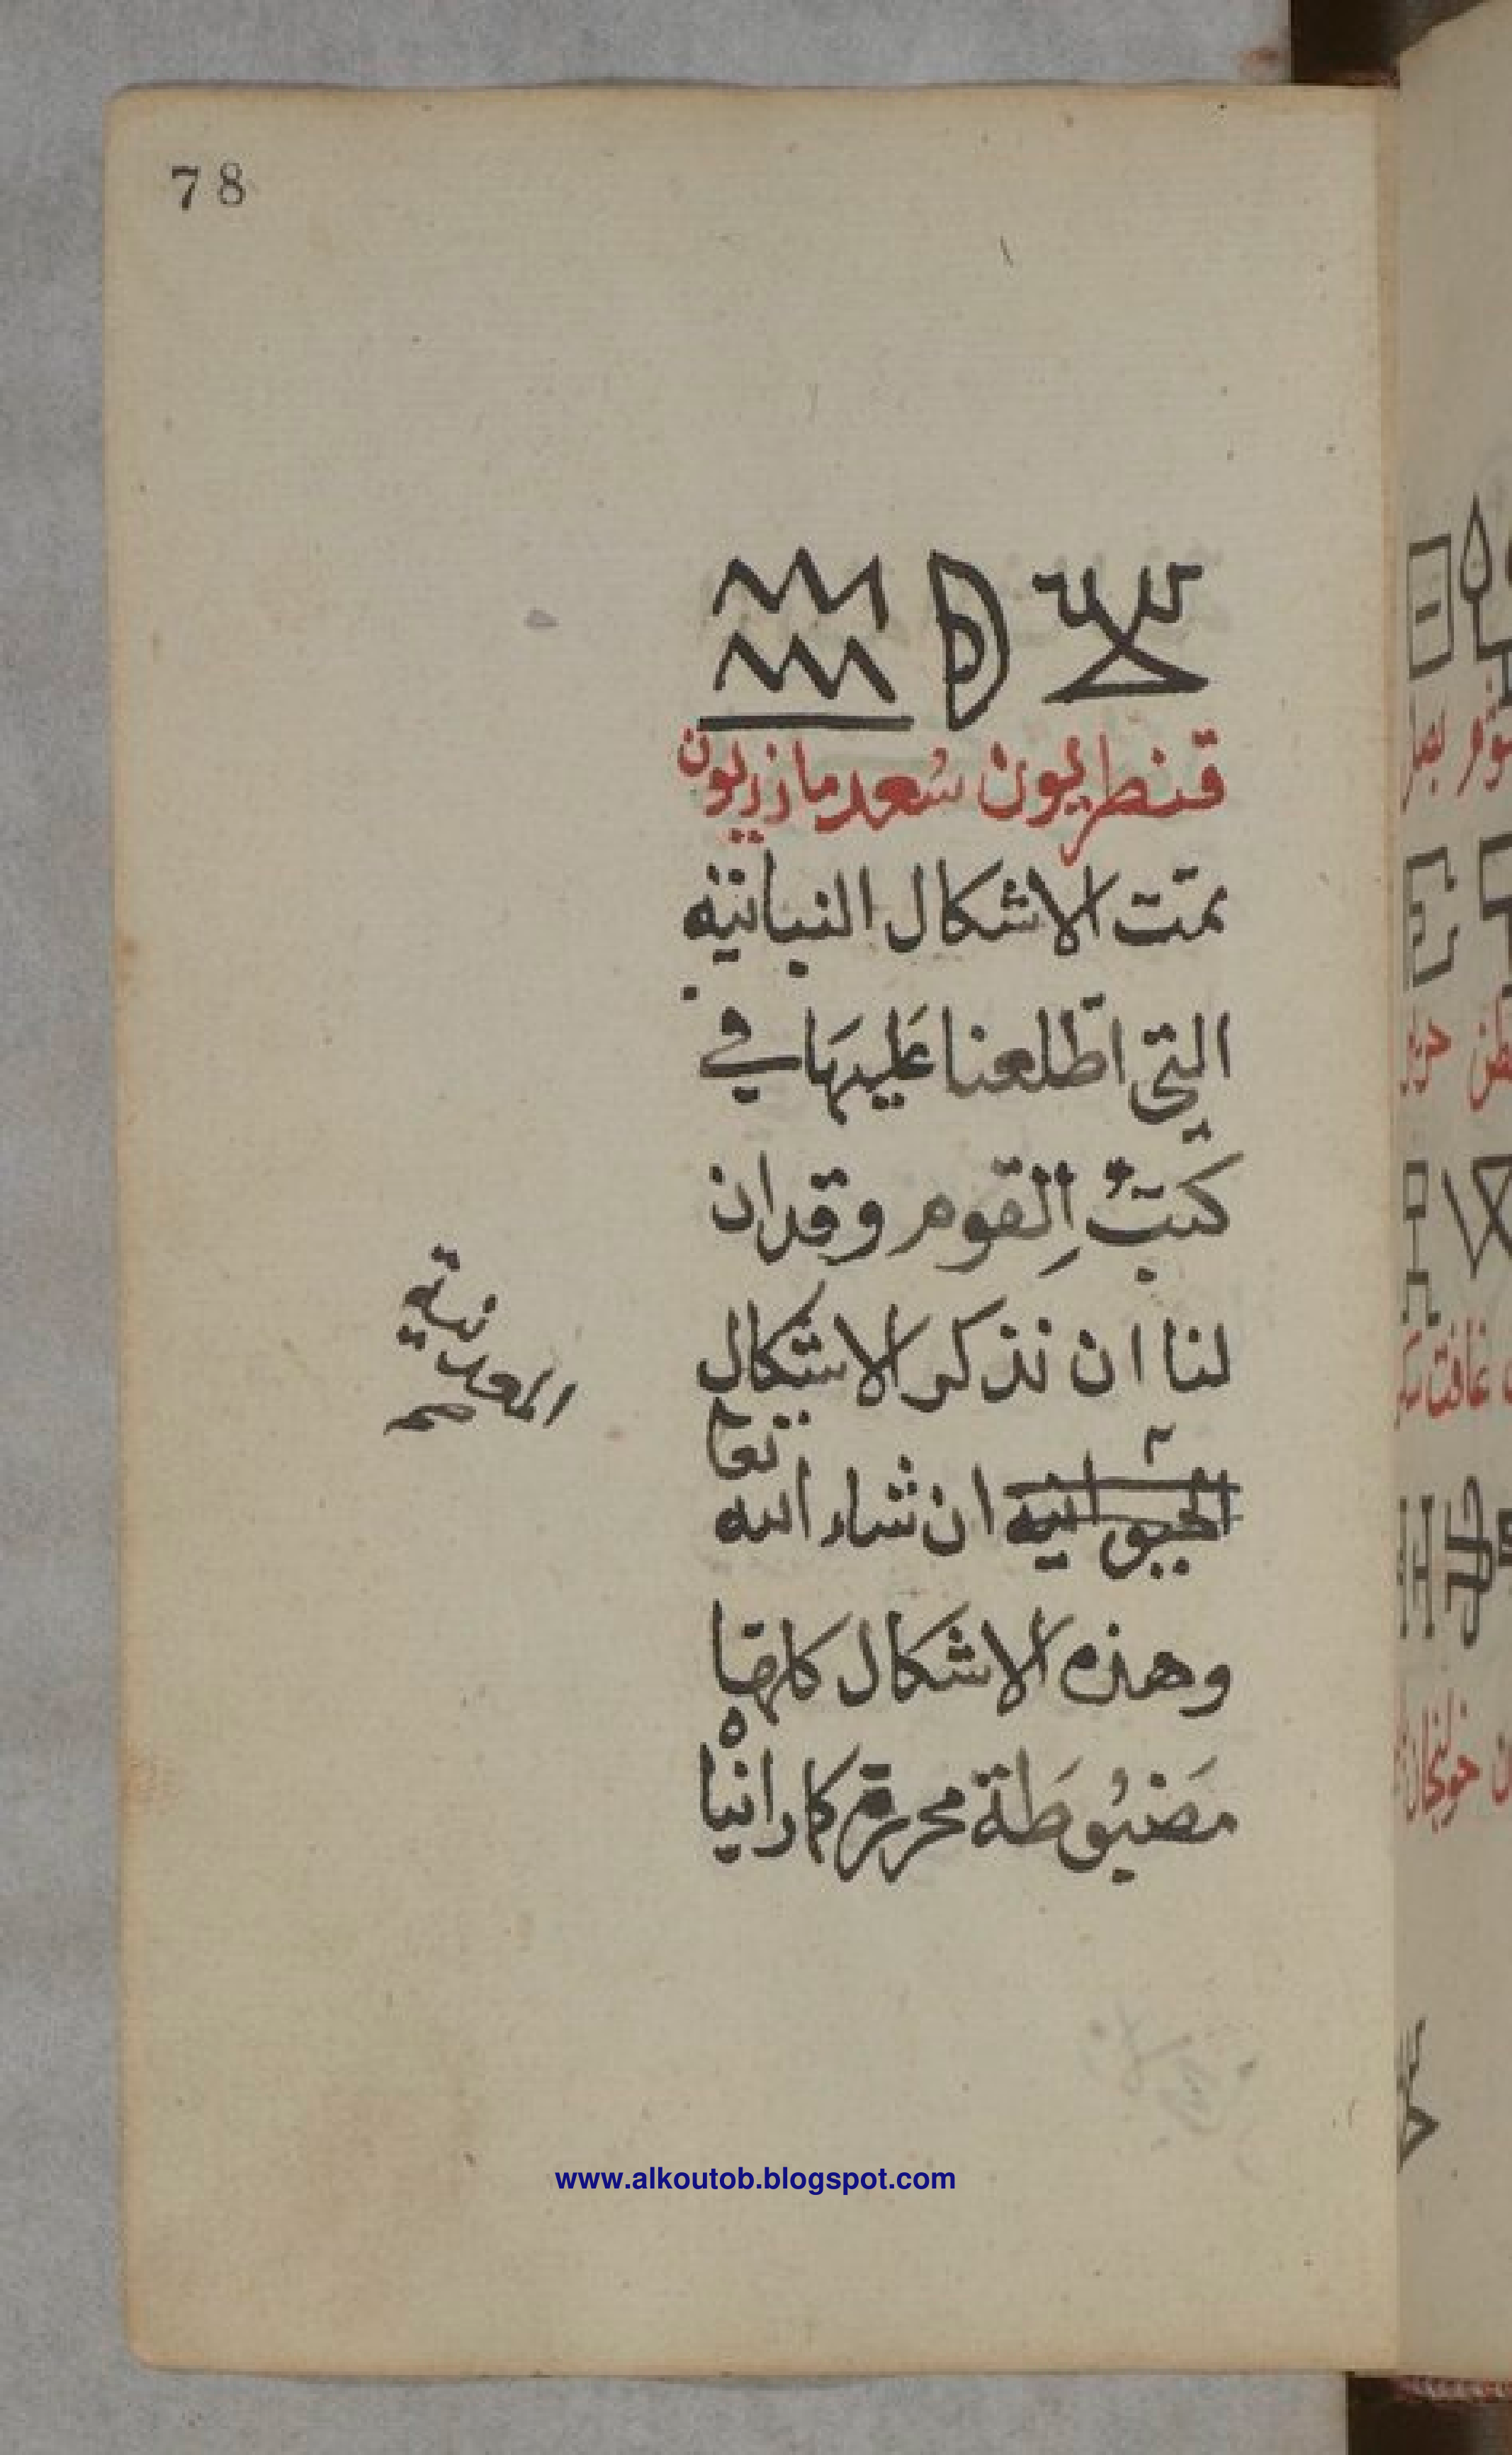 78
قنطريون سُعد مازريون
تمت الاشكال النباتية
التي اطّلعنا عَليهَا في
كتبُ اِلقوم وقد ان
لنا ان نذكر الاشكال
الحيوانية ان شاء الله تعا
المعدنية صح
وهذه الاشكال كلها
مَضبُوطَة محررة كما رايناه
www.alkoutob.blogspot.com